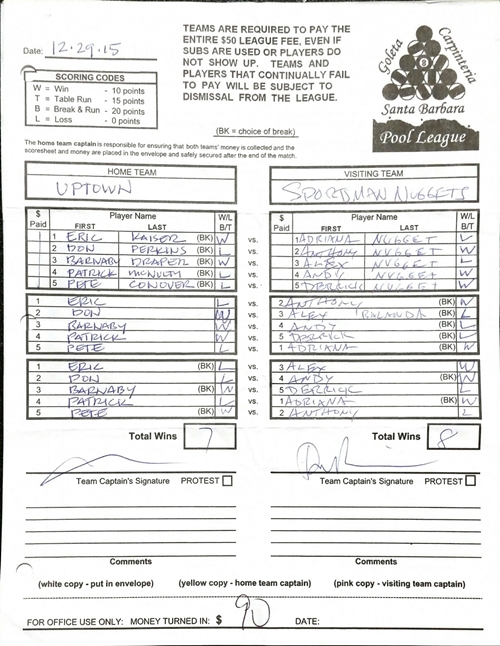 Date: 12.29.15
TEAMS ARE REQUIRED TO PAY THE
ENTIRE $50 LEAGUE FEE, EVEN IF
SUBS ARE USED OR PLAYERS DO
NOT SHOW UP. TEAMS AND
PLAYERS THAT CONTINUALLY FAIL
TO PAY WILL BE SUBJECT TO
DISMISSAL FROM THE LEAGUE.
Goleta Carpinteria
8
Santa Barbara
Pool League
SCORING CODES
W = Win - 10 points
T = Table Run - 15 points
B = Break & Run - 20 points
L = Loss - 0 points
(BK = choice of break)
The home team captain is responsible for ensuring that both teams' money is collected and the
scoresheet and money are placed in the envelope and safely secured after the end of the match.
HOME TEAM VISITING TEAM
UPTOWN SPORDMAN NUGGETS
$ Paid Player Name FIRST LAST W/L B/T $ Paid Player Name FIRST LAST W/L B/T
1 ERIC KAISER (BK) W vs. 1 ADRIANA NUGGET L
2 DON PERKINS (BK) L vs. 2 ANTHONY NUGGET W
3 BARNABY DRAPER (BK) W vs. 3 ALEX NUGGET L
4 PATRICK MCNULTY (BK) L vs. 4 ANDY NUGGET W
5 PETE CONOVER (BK) L vs. 5 DERRICK NUGGET W
1 ERIC L vs. 2 ANTHONY (BK) W
2 DON W vs. 3 ALEX (BK) L
3 BARNABY W vs. 4 ANDY (BK) L
4 PATRICK W vs. 5 DERRICK (BK) L
5 PETE L vs. 1 ADRIANA (BK) W
1 ERIC (BK) L vs. 3 ALEX W
2 DON L vs. 4 ANDY (BK) W
3 BARNABY (BK) W vs. 5 DERRICK L
4 PATRICK L vs. 1 ADRIANA (BK) W
5 PETE (BK) W vs. 2 ANTHONY L
Total Wins 7 Total Wins 8
Team Captain's Signature PROTEST Team Captain's Signature PROTEST
Comments Comments
(white copy - put in envelope) (yellow copy - home team captain) (pink copy - visiting team captain)
FOR OFFICE USE ONLY: MONEY TURNED IN: $ 90 DATE: